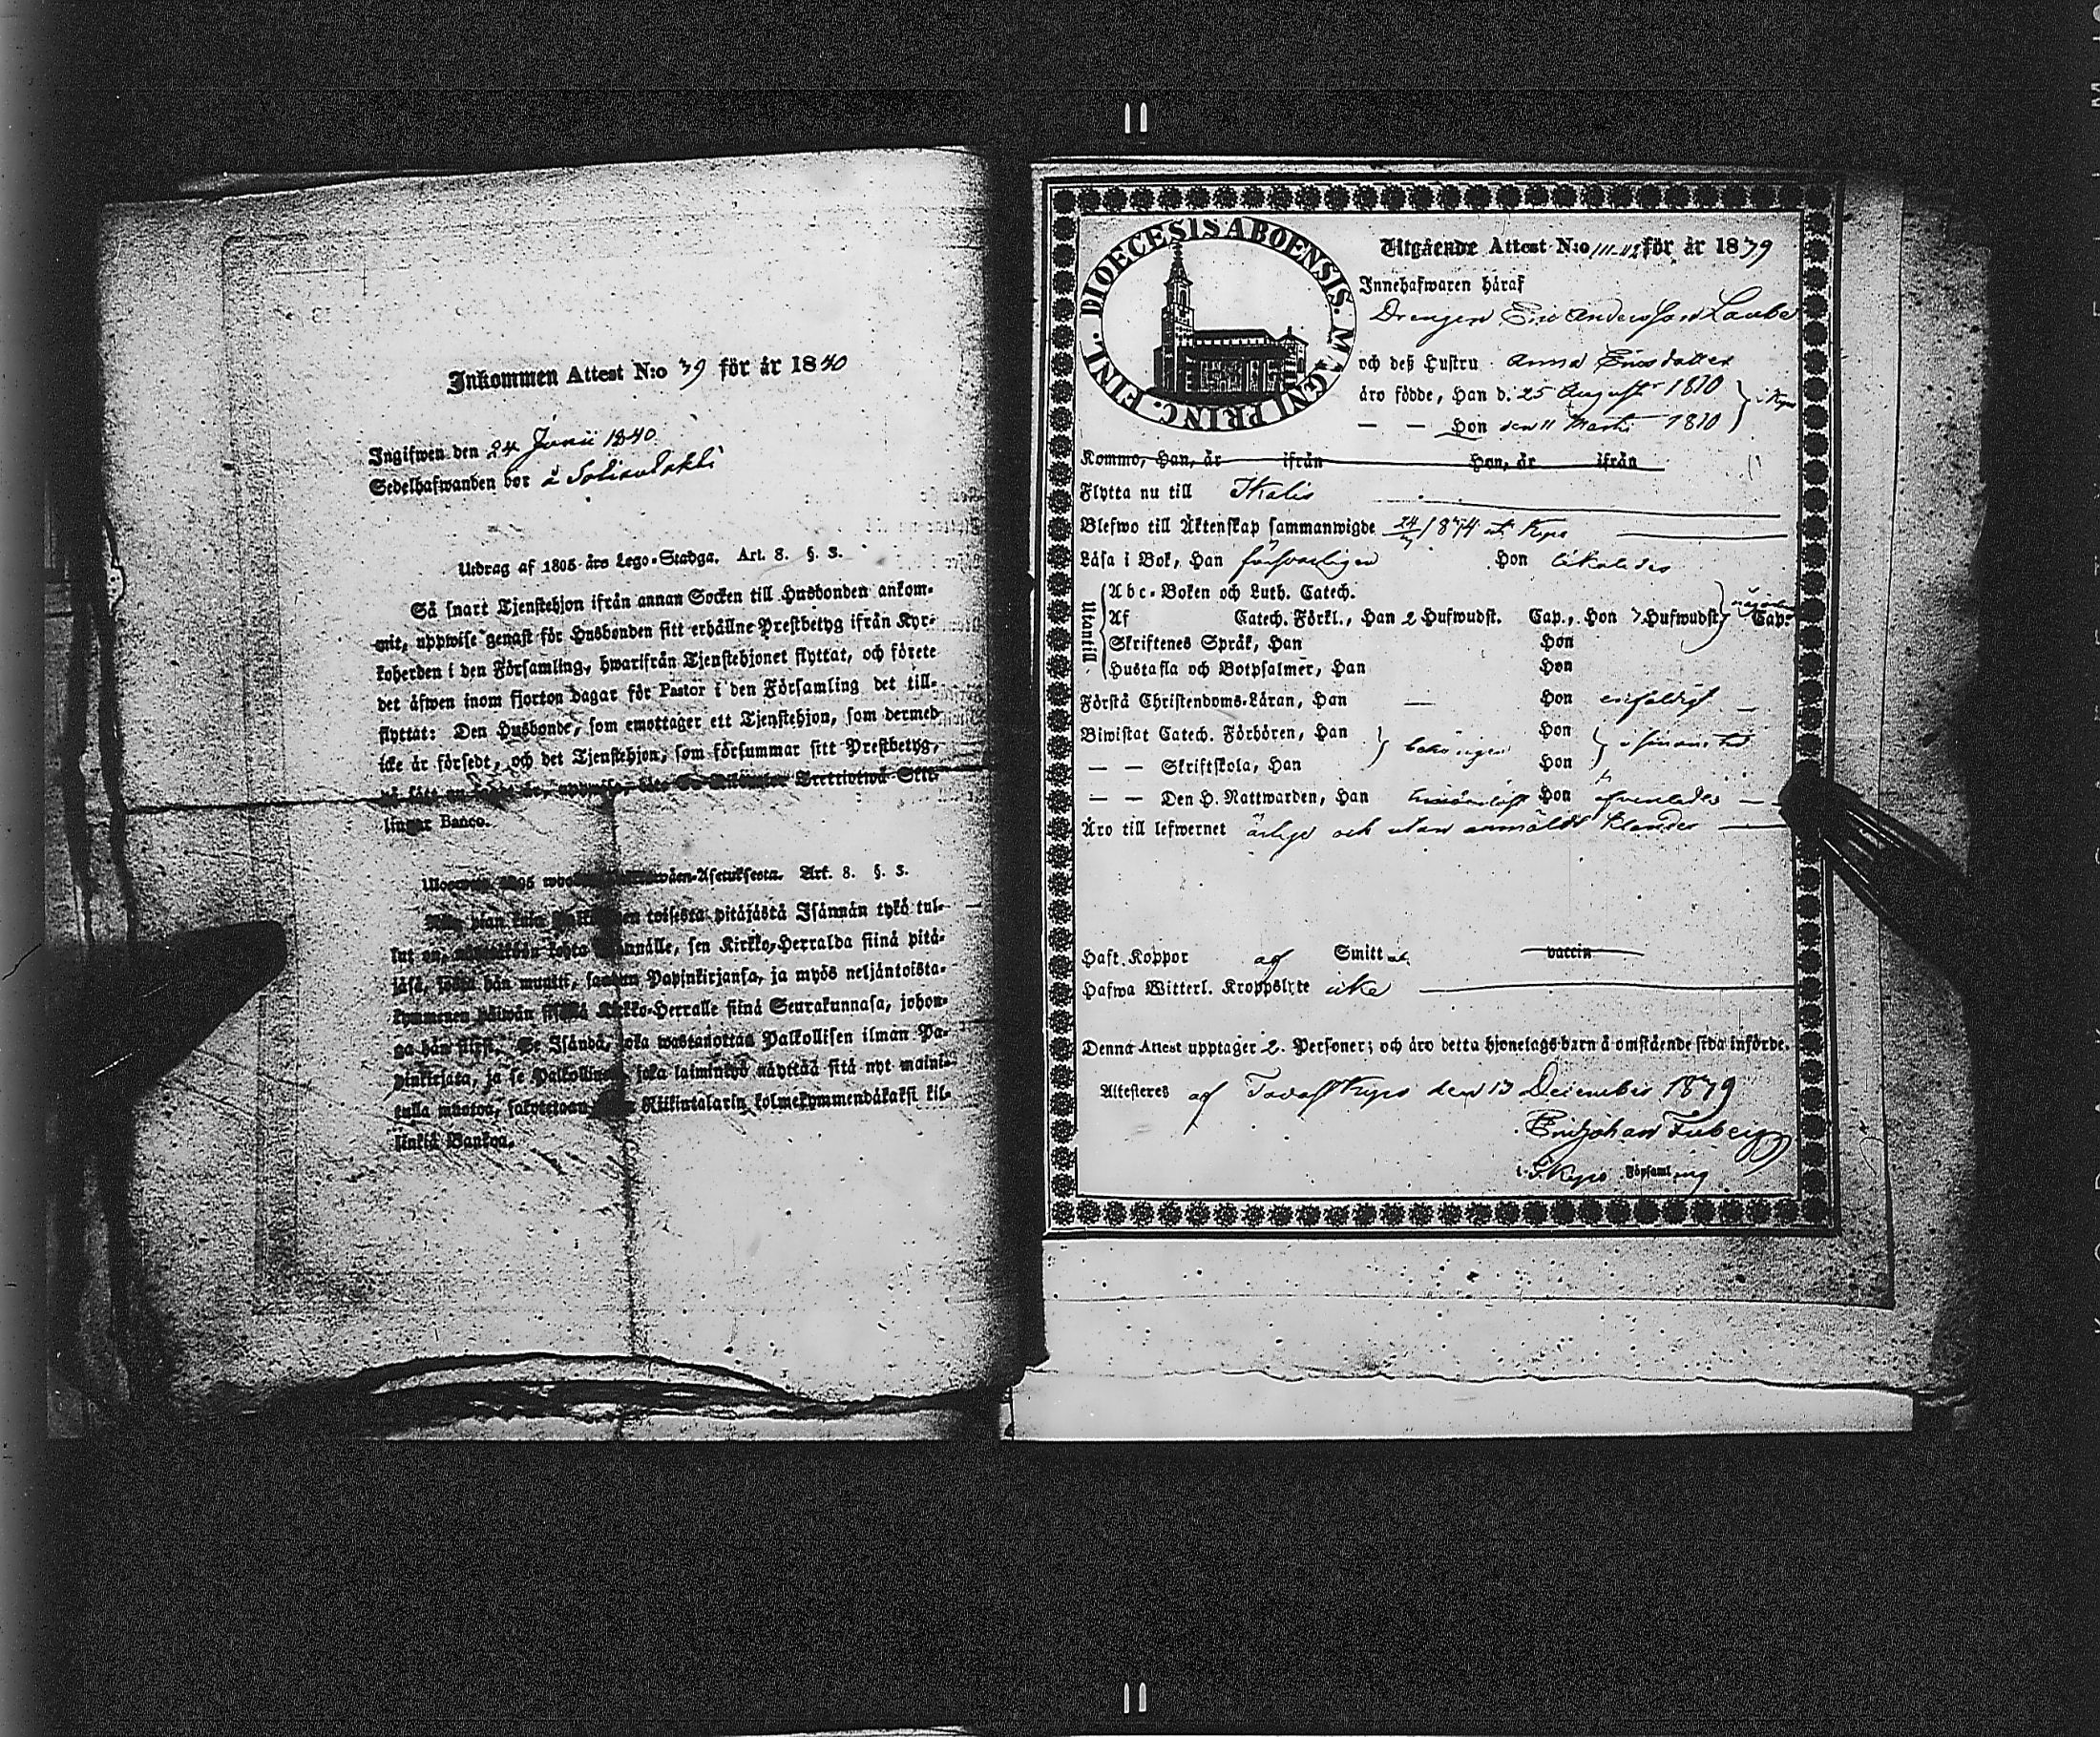 Inkommen Attest N:o 39 för år 1840
Ingifwen den 24 Junii 1840.
Sedelhafwanden bor å
Utdrag af 1805 års Lego-Stadga. Art. 8. §. 3.
Så snart Tjenstehjon ifrån annan Socken till Husbonden ankom-
mit, uppwise genast för Husbonden sitt erhållne Prestbetyg ifrån Kyr-
koherden i den Församling, hwarifrån Tjenstehjonet flyttat, och förete
det äfwen inom fjorton dagar för Pastor i den Församling det till-
flyttat: Den Husbonde, som emottager ett Tjenstehjon, som dermed
icke är försedt, och det Tjenstehjon, som försummar sitt Prestbetyg,
Trettiotwå Skil-
lingar Banco.
Art. 8. §. 3.
pian kuin toisesta pitäjästä Isännän tykö tul-
lut on, sen Kirkko-Herralda siinä pitä-
jäsä, josta hän muutti, saadun Papinkirjansa, ja myös neljäntoista-
kymmenen päiwän sisällä Kirkko-Herralle siinä Seurakunnasa, johon-
ga hän siirsi. Se Isändä, joka wastanottaa Palkollisen ilman Pa-
pinkirjata, ja se Palkollinen, joka laiminlyö näyttää sitä nyt maini-
tulla muotoa, Riikintalarin kolmekymmendäkaksi kil-
linkiä Bankoa.
DIOECESIS ABOENSIS. MAGNI PRINC. FINL.
Utgående Attest N:o 111-112 för år 1839
Innehafwaren häraf
Drengen Eric Andersson Laube
och deß Hustru Anna Ericsdotter
äro födde, Han d. 25 Augusti 1810
— — Hon den 11 Martii 1810
Kommo, Han, år ifrån Hon, år ifrån
Flytta nu till Ikalis
Blefwo till Äktenskap sammanwigde 24/ 1834 i Kyro
Läsa i Bok, Han försvarligen Hon likaledes
Utantill
Abc-Boken och Luth. Catech.
Af Catech. Förkl., Han 2 Hufwudst. Cap., Hon 3 Hufwudst. Cap.
Skriftenes Språk, Han Hon
Hustafla och Botpsalmer, Han Hon
Förstå Christendoms-Läran, Han — Hon enfaldigt —
Biwistat Catech. Förhören, Han Hon
— — Skriftskola, Han behörigen Hon
— — Den H. Nattwarden, Han Hon äfvenledes —
Äro till lefwernet ärlige och utan anmäldt klander —
Haft Koppor af Smitt vaccin
Hafwa Witterl. Kroppslyte icke
Denna Attest upptager 2. Personer; och äro detta hjonelags barn å omstående sida införde.
Attesteres af Tavastkyro den 13 December 1839
Eric Johan
i T.Kyro Församling